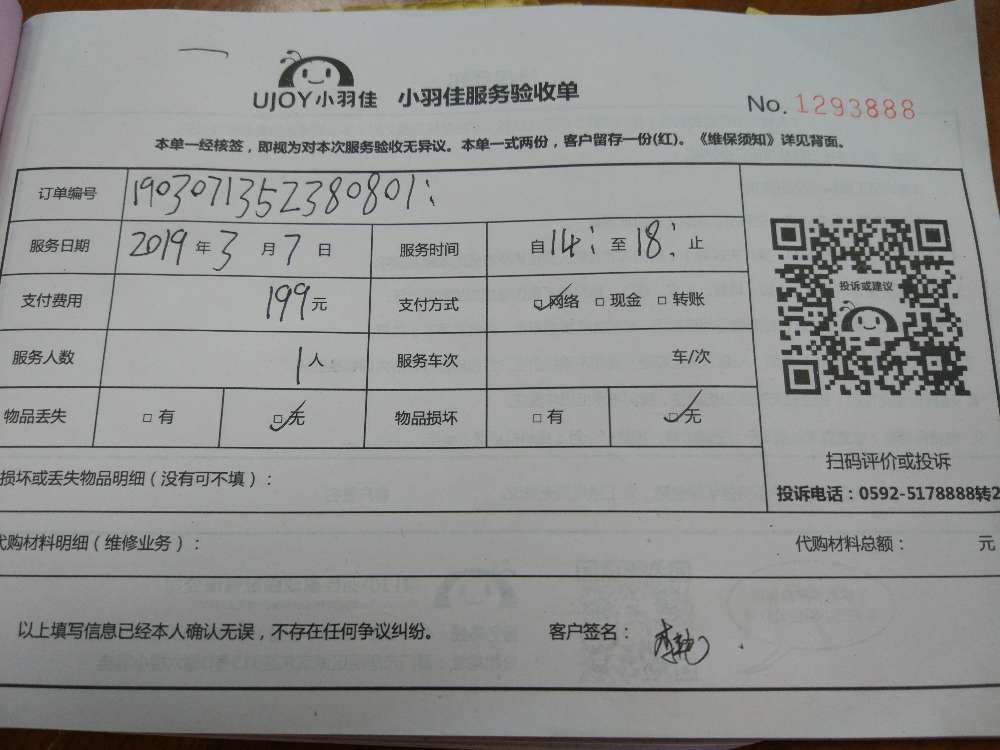 UJOY小羽佳 小羽佳服务验收单
No. 1293888
本单一经核签，即视为对本次服务验收无异议。本单一式两份，客户留存一份(红)。《维保须知》详见背面。
订单编号 1903071352380801:
服务日期 2019 年 3 月 7 日 服务时间 自 14: 至 18: 止
支付费用 199 元 支付方式 ☑网络 □现金 □转账
服务人数 1 人 服务车次 车/次
物品丢失 □有 ☑无 物品损坏 □有 ☑无
投诉或建议
扫码评价或投诉
投诉电话：0592-5178888转2
损坏或丢失物品明细（没有可不填）：
代购材料明细（维修业务）： 代购材料总额： 元
以上填写信息已经本人确认无误，不存在任何争议纠纷。 客户签名：